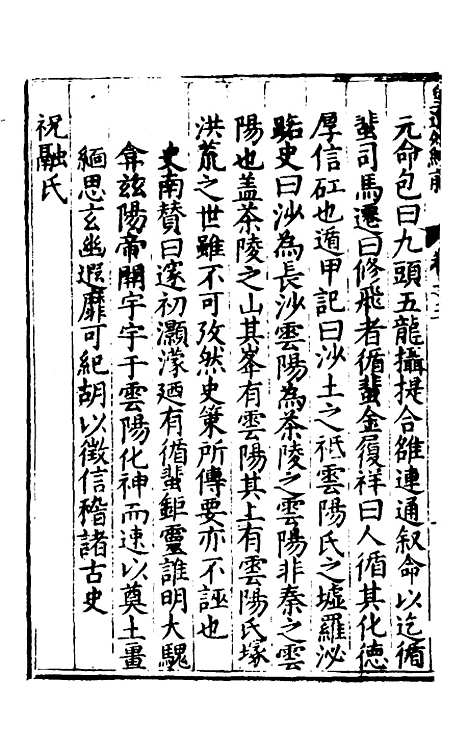 元命包曰九頭五龍攝提合雒連通叙命以迄循
蜚司馬遷曰修飛者循蜚金履祥曰人循其化德
厚信矼也遁甲記曰沙土之祇雲陽氏之墟羅泌
路史曰沙為長沙雲陽為茶陵之雲陽非秦之雲
陽也盖茶陵之山其峯有雲陽其上有雲陽氏塚
洪荒之世雖不可攷然史策所傳要亦不誣也
史南賛曰邃初灝濛廼有循蜚鉅靈誰明大騩
弇兹陽帝闢宇宇于雲陽化神而速以奠土畺
緬思玄幽遐靡可紀胡以徵信稽諸古史
祝融氏